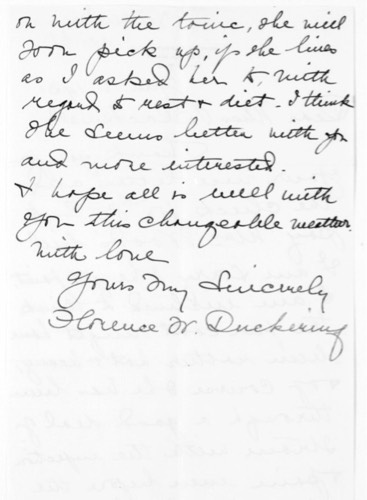 on with the tonic, she will
soon pick up, if she lives
as I asked her to, with
regard to rest + diet. I think
she seems better with you
and more interested.
I hope all is well with
you this changeable weather.
With love
Yours Very Sincerely
Florence W. Duckering